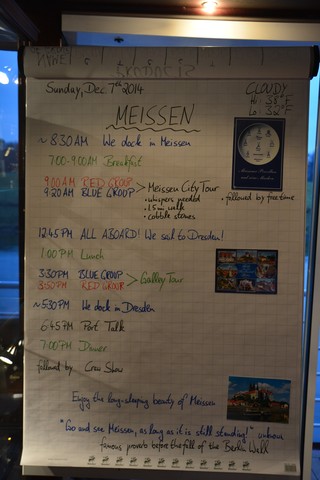 Sunday, Dec. 7th 2014
CLOUDY
Hi: 38°F
Lo: 32°F
MEISSEN
~ 8:30AM We dock in Meissen
7:00-9:00AM Breakfast
9:00 AM RED GROUP
9:20 AM BLUE GROUP > Meissen City Tour
• whispers needed
• 1.5 mi walk
• cobble stones
• followed by free time
12:45 PM ALL ABOARD! We sail to Dresden!
1:00 PM Lunch
3:30PM BLUE GROUP
3:50PM RED GROUP > Galley Tour
~ 5:30 PM We dock in Dresden
6:45 PM Port Talk
7:00 PM Dinner
followed by Crew Show
Enjoy the long-sleeping beauty of Meissen
"Go and see Meissen, as long as it is still standing!" unknown
famous proverb before the fall of the Berlin Wall